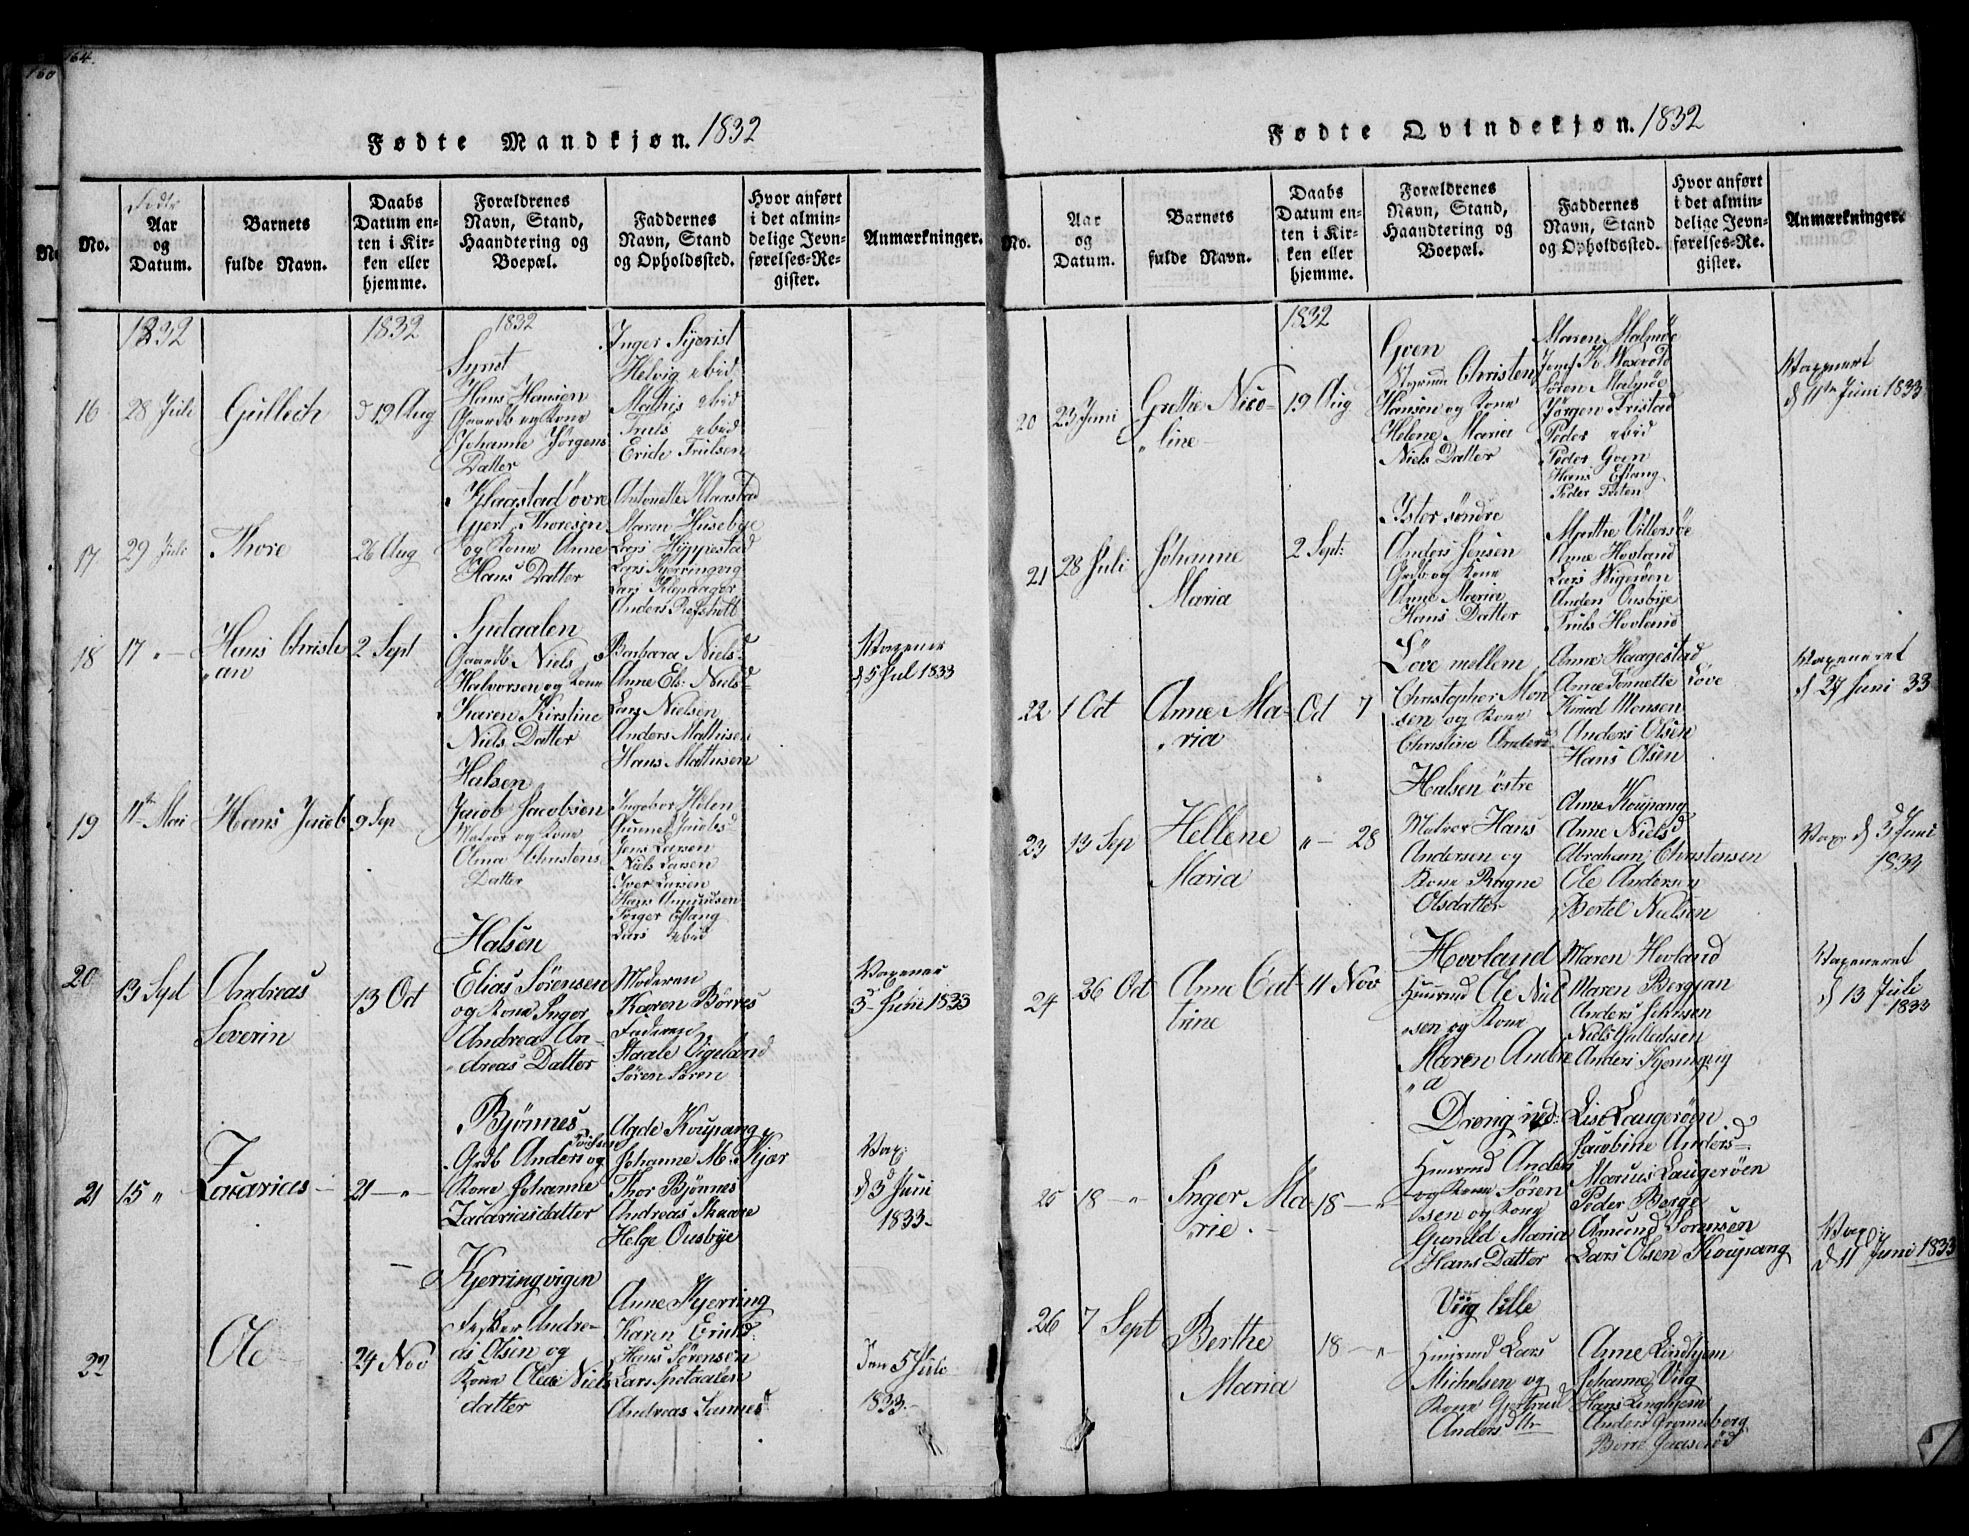 164.
160
Fødte Mandkjøn. 1832
No.
Fødte
Aar
og
Datum.
Barnets
fulde Navn.
Daabs
Datum en-
ten i Kir-
ken eller
hjemme.
Forældrenes
Navn, Stand,
Haandtering og
Boepæl.
Faddernes
Navn, Stand
og Opholdssted.
Hvor anført
i det almin-
delige Jevn-
førelses-Re-
gister.
Anmærkninger.
1832
1832
1832
16
28 Juli
Gullech
d 19 Aug
Hans Hansen
Gaardb og Kone
Johanne Jørgens
Datter
Helvig ebid
Mathis ebid
Truls ebid
Erich Trulsen
17
29 Juli
Thore
26 Aug
Klaastad øvre
Gjert Thoresen
og Kone Anne
Hans Datter
Antonette Klaastad
Maren Husebye
Lars Hyppestad
Lars Kjerringvig
Lars Klepaager
18
17 "
Hans Christi
"an
2 Sept
Spetaalen
Gaardb Niels
Halvorsen og Kone
Karen Kirstine
Niels Datter
Barbara Niels d
Anne Els: Niels d
Lars Nielsen
Anders Mathisen
Hans Mathisen
d 5 Jul 1833
19
11te Mai
Hans Jacob
9 Sep
Halsen
Jacob Jacobsen
Matros og Kone
Christens
Datter
Gunnel Jacobs d
Jens Larsen
Niels Larsen
Iver Larsen
Hans Amundsen
Lars ebid
20
13 Sept
Andreas
Severin
13 Oct
Halsen
Elias Sørensen
og Kone Inger
Andrea An-
"dreas Datter
Moderen
Karen Børres
Faderen
Staale Vigeland
Søren Søren
3 Juni 1833
21
15 "
Zacarias
21 — " —
Bjønnes
Grdb Anders og
Kone Johanne
Zacariasdatter
Agde Koupang
Johanne M. Kjær
Thor Bjønnes
Andreas Skaare
Helge Ousbye
Vax:
d 3 Juni
1833
22
Ole
24 Nov
Kjerringvigen
Andre-
as Olsen og
Kone Olea Niels
datter
Anne Kjerring
Karen
Hans Sørensen
Lars Spetaalen
Andreas
Den 5 Juli
1833
Fødte Qvindekjøn. 1832
No.
Aar
og
Datum.
Barnets
fulde Navn.
Daabs
Datum en-
ten i Kir-
ken eller
hjemme.
Forældrenes
Navn, Stand,
Haandtering og
Boepæl.
Faddernes
Navn, Stand
og Opholdssted.
Hvor anført
i det almin-
delige Jevn-
førelses-Re-
gister.
Anmærkninger.
1832
20
23 Juni
Grethe Nico-
"line
19 Aug
Gven
Christen
Hansen og Kone
Helene Maria
Niels Datter
Maren Malmøe
Søren Malmøe
Jørgen Fristad
Peder ebid
Peder Gven
Hans Eftang
Peder
d 11te Juni 1833
21
28 Juli
Johanne
Maria
2 Sept:
Ister søndre
Anders Jensen
Grdb og Kone
Anne Maria
Hans Datter
Marthe Villersøe
Anne Hovland
Lars
Anders Ousbye
Truls Hovland
22
1 Oct
Anne Ma-
"ria
Oct 7
Løve mellem
Christopher Mon
sen og Kone
Christine Anders
Anne Haagestad
Anne Tonnette Løve
Knud Monsen
Anders Olsen
Hans Olsen
Vaxeneret
d 27 Juni 33
23
13 Sep
Hellene
Maria
" — 28
Halsen østre
Matros Hans
Andersen og
Kone Ragne
Olsdatter
Anne Koupang
Anne Niels d
Abraham Christensen
Ole Andersen
Bertel Nielsen
Vaxe: d 3 Juni
1834
24
26 Oct
Anne Cat-
trine
11 Nov
Hovland
Huusmd Ole Niel
"sen og Kone
Maren Andre
"a
Maren Hovland
Maren Bergaan
Anders Johnsen
Niels Gulliksen
Anders Kjerringvig
Vaxeneret
d 13 Juli
1833
25
18 — "
Inger Ma-
"rie
18 — "
Huusmd Anders
og Kone Søren
sen og Kone
Gunild Maria
Hans Datter
Lise Laugerøen
Jacobine Anders d
Marius Laugerøen
Peder Berge
Amund Sørensen
Lars Olsen Koupang
Vaxe:
d 11 Juni 1833
26
7 Sept
Berthe
Maria
18 — "
Viig lille
Huusmd Lars
Michelsen og
Kone Gjertrud
Anders dtr
Anne Lindhjem
Johanne Viig
Hans Linghjem
Anders Grønneberg